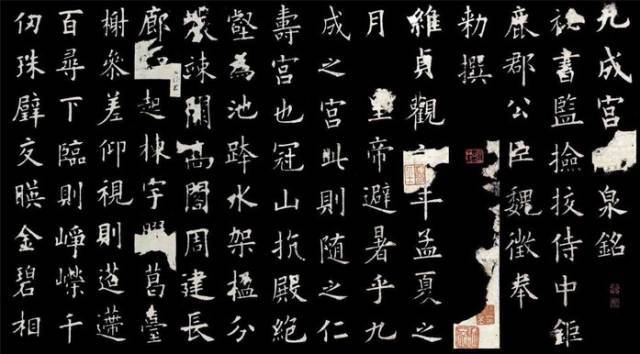 九成宮泉銘
祕書監撿挍侍中鉅
鹿郡公臣魏徵奉
勅撰
維貞觀年孟夏之
月 皇帝避暑乎九
成之宮此則隨之仁
壽宮也冠山抗殿絕
壑為池跨水架楹分
巖竦闕高閣周建長
廊起棟宇葛臺
榭參差仰視則迢遰
百尋下臨則崢嶸千
仞珠璧交暎金碧相